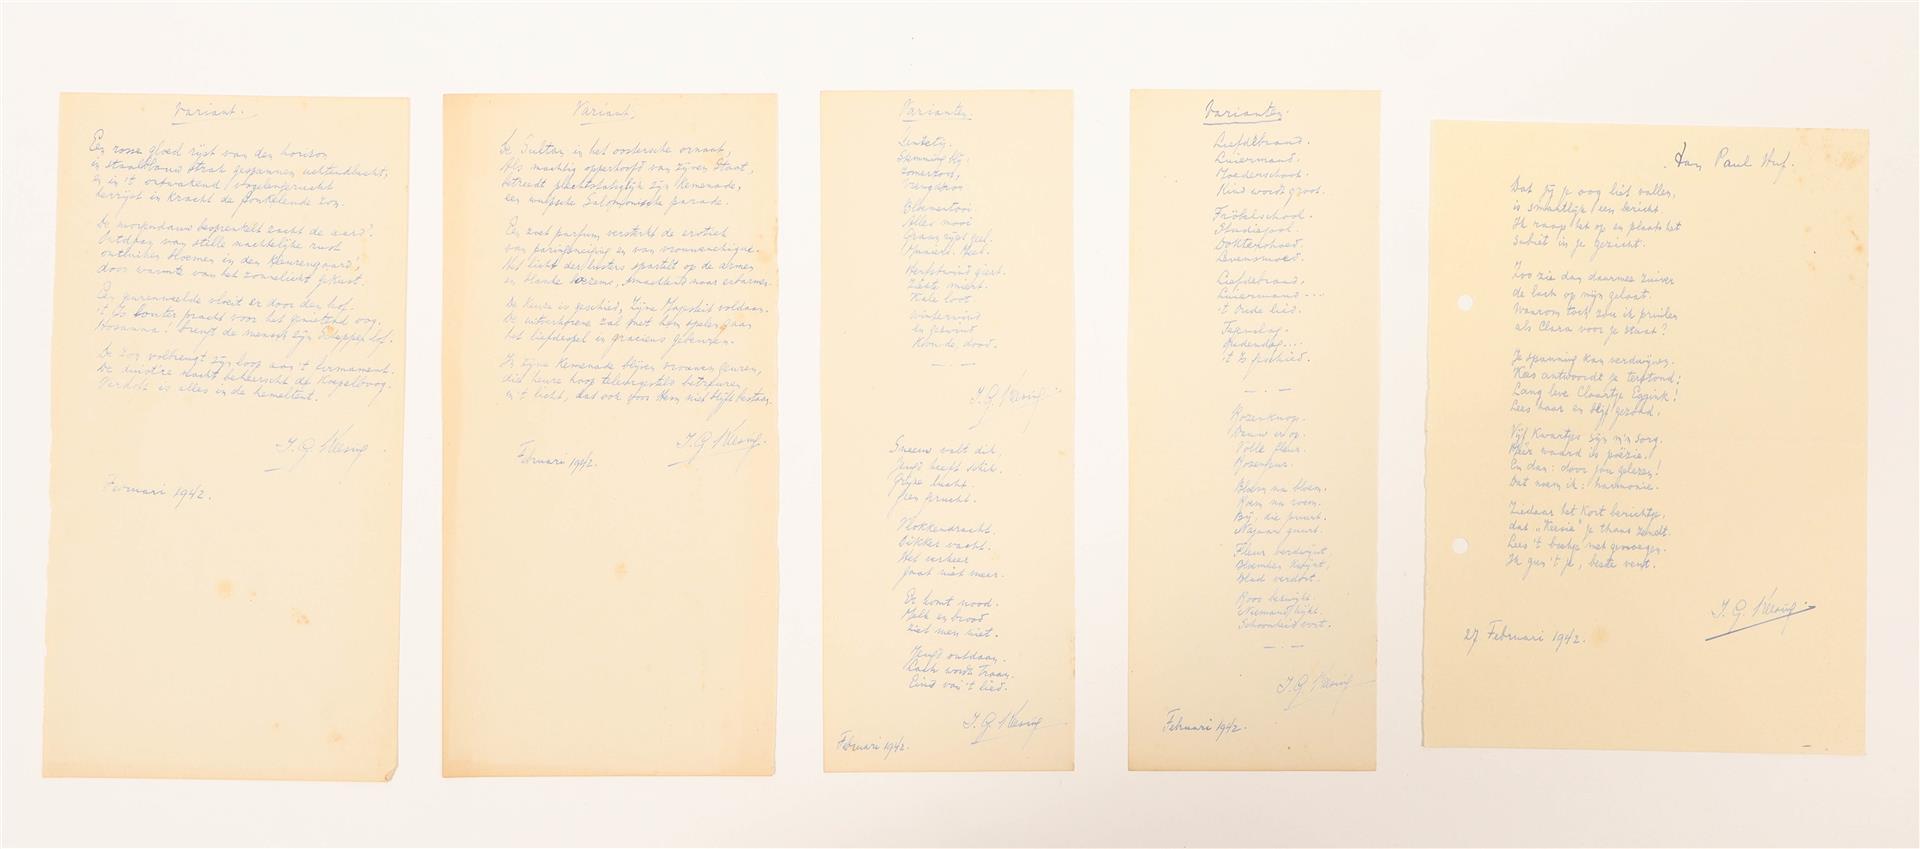 Variant.
Een rosse gloed rijst van den horizon
in staalblauw strak gespannen uchtendlucht,
en in 't ontwakend vogelengerucht
herrijst in kracht de fonkelende zon.
De morgendauw besprenkelt zacht de aard'.
Ontdaan van stille nachtelijke rust
ontluiken bloemen in den kleurengaard',
door warmte van het zonnelicht gekust.
Een geurenweelde vloeit er door den hof.
't Is louter pracht voor het genietend oog.
Hosanna! brengt de mensch zijn Schepper lof.
De zon volbrengt zijn loop aan 't firmament.
De duistre nacht beheerscht de Koepelboog.
Verkoold is alles in de hemeltent.
J. G. Keesing
Februari 1942.
Variant.
De Sultan in het oostersche ornaat,
Als machtig opperhoofd van zijnen Staat,
betreedt plechtstatiglijk zijn Kemenade,
een wulpsche Salomonische parade.
Een zoet parfum versterkt de erotiek
van paringsneiging en van vrouwenchique.
Het licht der lusters spartelt op de armen
en blanke boezems, smachtend naar erbarmen.
De keuze is geschied, Zijne Majesteit voldaan.
De uitverkorene zal met hem spelen gaan
het liefdespel in gracieus gebeuren.
In zijne Kemenade blijven vrouwen geuren,
die heure hoop teleurgesteld betreuren
in 't licht, dat ook voor Hem niet blijft bestaan.
J. G. Keesing
Februari 1942.
Varianten.
Lentetij.
Stemming blij.
Zomerzon,
Bloementooi
Alles mooi
Graan rijst geel.
Herfstwind giert.
Ziekte miert.
Kale loot
Winterwind
en gezwind
Koude, dood.
J. G. Keesing
Sneeuw valt dik,
Jeugd heeft schik.
Grijze lucht.
Geen gerucht.
Vlokkendracht.
Dikker vacht.
Het verkeer
gaat niet meer.
Er komt nood.
Melk en brood
ziet men niet.
Jeugd ontdaan.
Lach wordt Traan.
Eind van 't lied.
J. G. Keesing
Februari 1942.
Varianten.
Liefdebrand.
Luiermand.
Moederschoot.
Kind wordt groot.
Fröbelschool.
Studiejool.
Doktershoed.
Levensmoed.
Liefdebrand,
Luiermand...
't Oude lied.
Jaarndag...
't Is geschied.
Rozenknop.
Dauw er op.
Volle fleur.
Rozengeur.
Bloem na bloem.
Roem na roem.
Bij, die puurt.
Najaar guurt.
Fleur verdwijnt,
Bloemken kwijnt,
Blad verdort.
Roos bezwijkt.
Niemand kijkt.
Schoonheid vort.
J. G. Keesing
Februari 1942.
Aan Paul Huf.
Dat gij je oog liet vallen,
is smaaklijk een bericht.
Ik raap het op en plaats het
subiet in je gezicht.
Zoo zie dan daarmee zuiver
de lach op mijn gelaat.
Waarom toch zou ik pruilen
als Clara voor je staat?
Je spanning kan verdwijnen,
Kees antwoordt je terstond:
Lang leve Claartje Eggink!
Lees haar en blijf gezond.
Vijf kwartjes zijn m'n zorg.
Méér waard is poëzie!
En dan: door jou gelezen!
Dat noem ik: harmonie.
Ziedaar het kort berichtje,
dat „Keesie" je thans zendt.
Lees 't boekje met genoegen.
Ik gun 't je, beste vent.
J. G. Keesing.
27 Februari 1942.